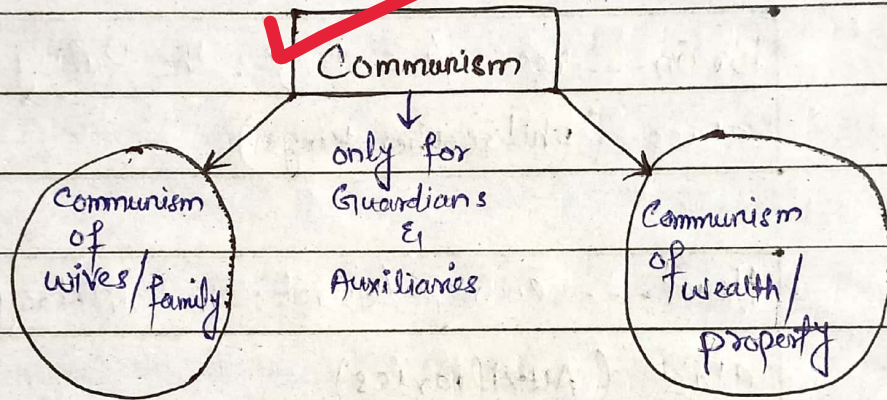 Communism
only for
Guardians
&
Auxiliaries
Communism
of
wives/family.
Communism
of wealth/
property